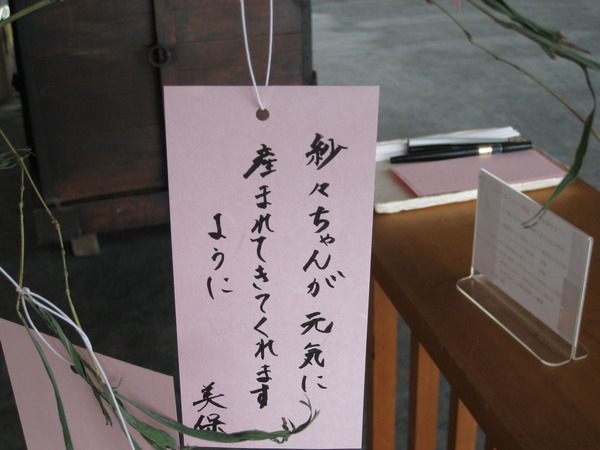 紗々ちゃんが元気に
産まれてきてくれます
ように
美保